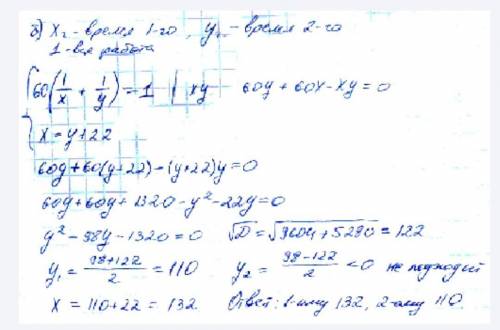 б) x ч - время 1-го, y ч - время 2-го
1 - вся работа
60(1/x + 1/y) = 1 | xy 60y + 60x - xy = 0
x = y + 22
60y + 60(y + 22) - (y + 22)y = 0
60y + 60y + 1320 - y² - 22y = 0
y² - 98y - 1320 = 0 √D = √9604 + 5280 = 122
y₁ = 98+122/2 = 110 y₂ = 98-122/2 < 0 не подходит
x = 110 + 22 = 132 Ответ: 1-ому 132, 2-ому 110